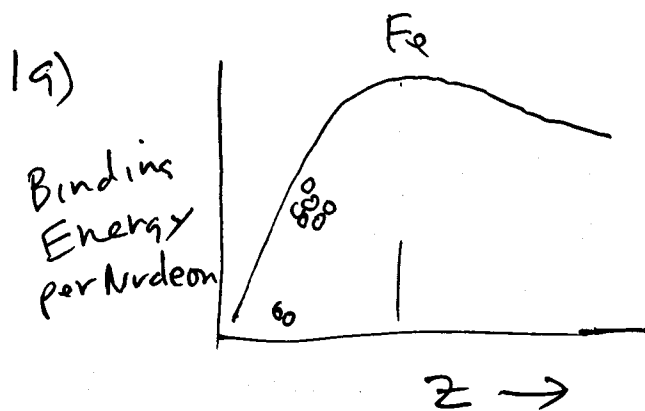 Fe
1a)
Binding
Energy
per Nucleon
Z →